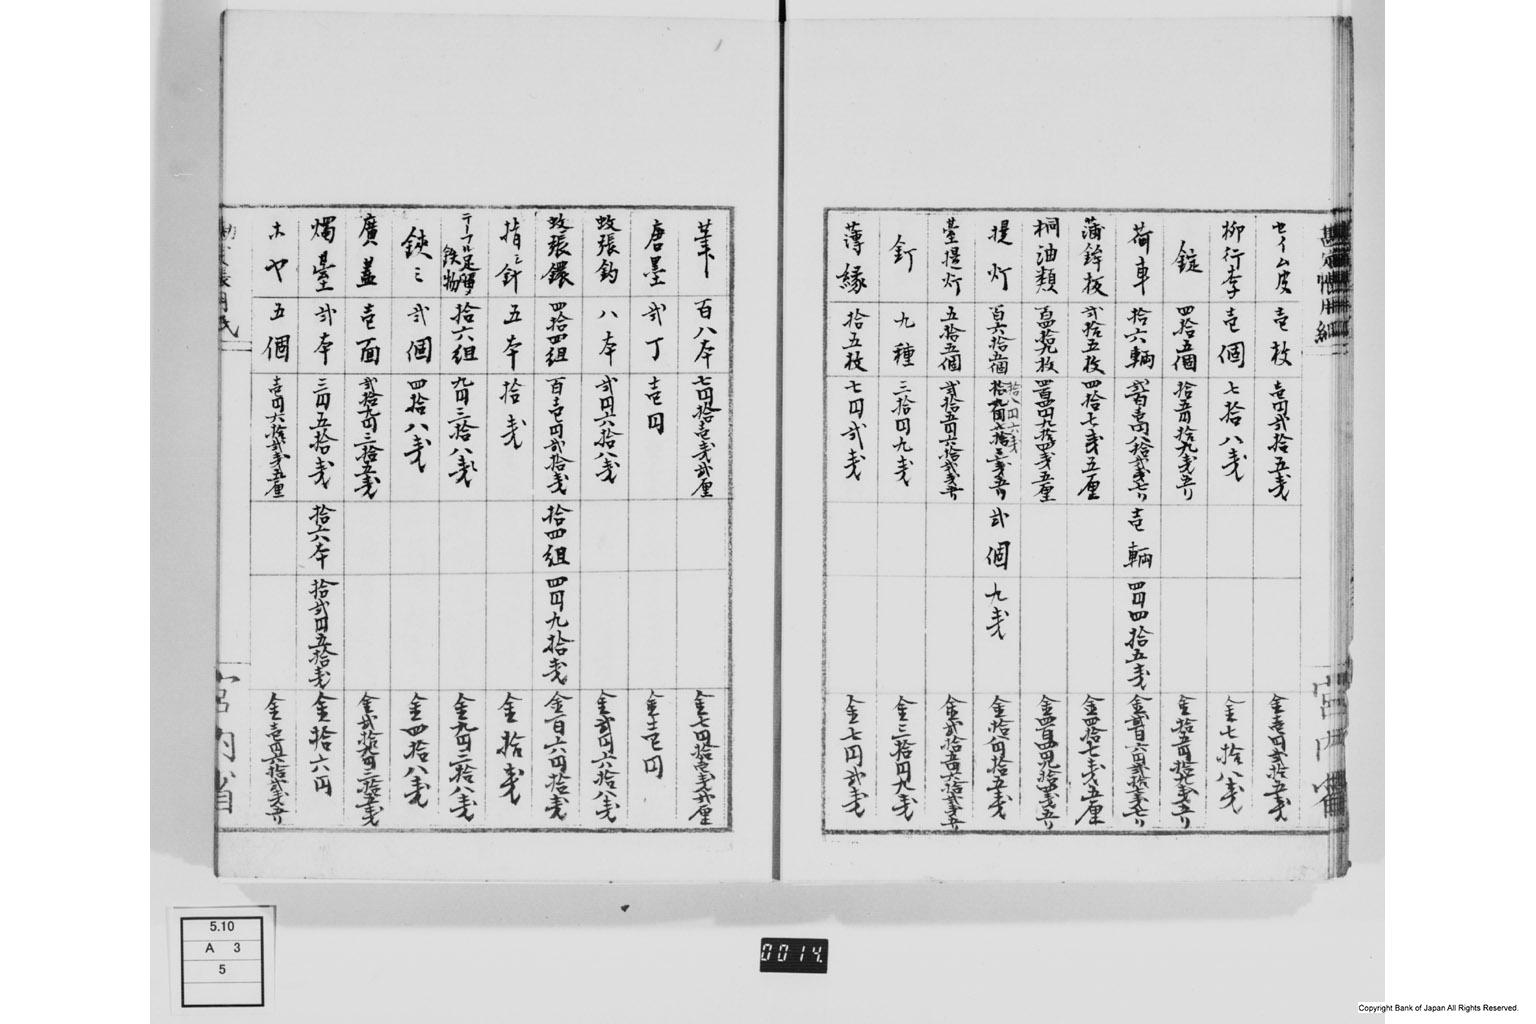 セイム皮 壱枚 壱円弐拾五戔 金壱円弐拾五戔
柳行李 壱個 七拾八戔 金七拾八戔
錠 四拾五個 拾五円拾九戔五リ 金拾五円拾九戔五リ
荷車 拾六輌 壱輌 四円四拾五戔 金弐百六円弐拾七戔七リ
蒲鉾板 弐拾五枚 四拾七戔五厘 金四拾七戔五厘
桐油類
提灯 弐個 九戔 金拾八円拾五戔
拾八円六戔
台提灯 五拾五個 弐拾五円六拾弐戔五リ 金弐拾五円六拾弐戔五リ
釘 九種 三拾円九戔 金三拾円九戔
薄縁 拾五枚 七円弐戔 金七円弐戔
筆 百八本 七円拾壱戔弐厘 金七円拾壱戔弐厘
唐墨 弐丁 壱円 金壱円
蚊張釣 八本 弐円六拾八戔 金弐円六拾八戔
蚊張鐶 四拾四組 百壱円弐拾戔 拾四組 四円九拾戔 金百六円拾戔
指シ針 五本 拾戔 金拾戔
テーブル足 鉄物 拾六組 九円三拾八戔 金九円三拾八戔
鋏ミ 弐個 四拾八戔 金四拾八戔
廣蓋 壱面 弐拾九円三拾五戔 金弐拾九円三拾五戔
燭臺 弐本 三円五拾戔 拾六本 拾弐円五拾戔 金拾六円
ホヤ 五個 壱円六拾弐戔五厘 金壱円六拾弐戔五リ
宮内省
宮内省
5.10
A 3
5
0014.
Copyright Bank of Japan All Rights Reserved.